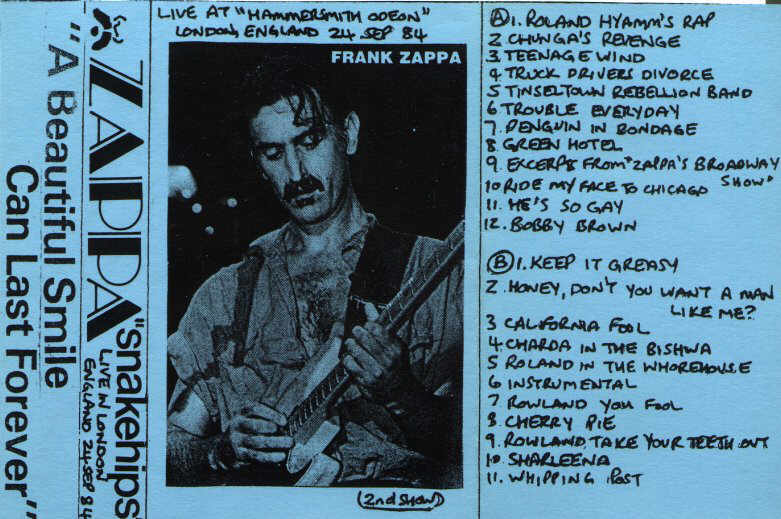 "A Beautiful Smile
Can Last Forever"
ZAPPA "snakehips"
LIVE IN LONDON
ENGLAND 24 SEP 84
LIVE AT "HAMMERSMITH ODEON"
LONDON, ENGLAND 24 SEP 84
FRANK ZAPPA
(2nd SHOW)
A 1. ROLAND HYAMM'S RAP
2 CHUNGA'S REVENGE
3. TEENAGE WIND
4. TRUCK DRIVERS DIVORCE
5 TINSELTOWN REBELLION BAND
6. TROUBLE EVERYDAY
7. PENGUIN IN BONDAGE
8 GREEN HOTEL
9. EXCERPS FROM "ZAPPA'S BROADWAY
SHOW"
10 RIDE MY FACE TO CHICAGO
11. HE'S SO GAY
12. BOBBY BROWN
B 1. KEEP IT GREASY
2. HONEY, DON'T YOU WANT A MAN
LIKE ME?
3 CALIFORNIA FOOL
4. CHARDA IN THE BISHWA
5 ROLAND IN THE WHOREHOUSE
6 INSTRUMENTAL
7 ROWLAND YOU FOOL
8. CHERRY PIE
9. ROWLAND, TAKE YOUR TEETH OUT
10. SHARLEENA
11. WHIPPING POST